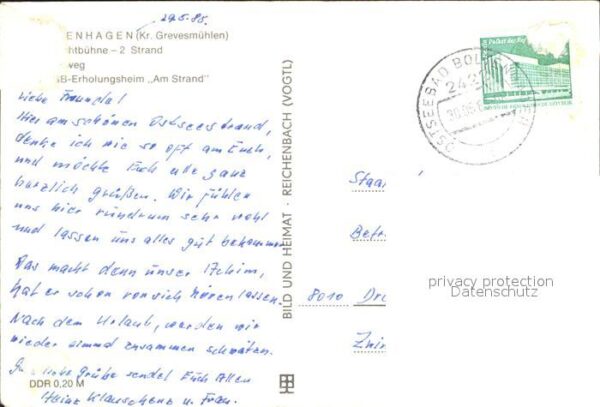 29.5.85.
ENHAGEN (Kr. Grevesmühlen)
chtbühne – 2 Strand
weg
GB-Erholungsheim „Am Strand"
Liebe Freunde!
Hier am schönen Ostseestrand,
denke ich wie so oft an Euch,
und möchte Euch alle ganz
herzlich grüßen. Wir fühlen
uns hier rundrum sehr wohl
und lassen uns alles gut bekommen
Was macht denn unser Achim,
hat er schon von sich hören lassen.
Nach dem Urlaub, werden wir
wieder einmal zusammen schwätzen.
liebe Grüße sendet Euch Allen
Heinz u. Frau.
DDR 0,20 M
BILD UND HEIMAT · REICHENBACH (VOGTL)
OSTSEEBAD
30.05.
Palast der Rep
Staa
Betr.
8010 Dre
privacy protection
Datenschutz